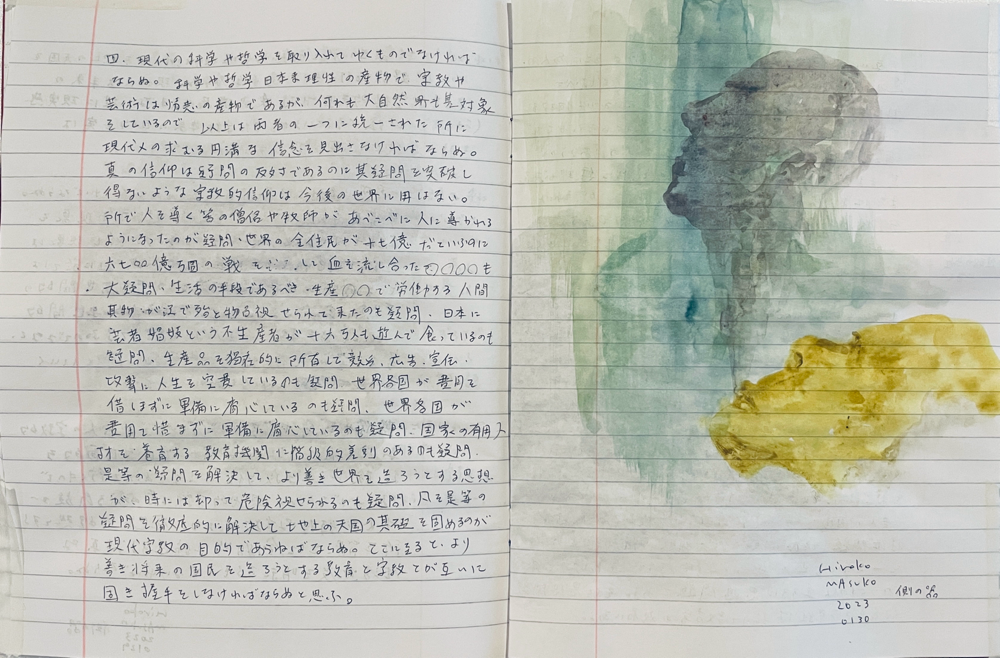 四、現代の科学や哲学を取り入れてゆくものでなければ
ならぬ。科学や哲学日本来理性の産物で、宗教や
芸術は情意の産物であるが、何れも大自然 を其対象
としているので 以上は両者の一つに統一された所に
現代人の求むる円満な信念を見出さなければならぬ。
真の信仰は疑問の 対であるのに其疑問を突破し
得ないような宗教的信仰は今後の世界に用はない。
所で人を導く筈の僧侶や牧師があべこべに人に導かれる
ようになったのが疑問、世界の全住民が十七億だというのに
六七〇〇億万国の戦を して血を流し合った〇〇〇〇も
大疑問・生活の手段であるべき・生産〇〇で労働する人間
其物・が 殆と物品視せられて来たのも疑問、日本に
芸者娼妓という不生産者が十六万人も遊んで食っているのも
疑問、生産品を独在的に所有して競争、広告、宣伝、
攻撃に人生を空費しているのも疑問 世界各国が費用を
惜しまずに軍備に腐心しているのも疑問、世界各国が
費用を惜まずに軍備に腐心しているのも疑問、国家の有用人
材を養育する教育機関に階級的差別のあるのも疑問、
是等の疑問を解決して、より善き世界を造ろうとする思想
が、時には却って危険視せられるのも疑問、凡そ是等の
疑問を徹底的に解決して地上の天国の基礎を固めるのが
現代宗教の目的であらねばならぬ。ここに至ると、より
善き将来の国民を造ろうとする教育と宗教とが互いに
固き握手をしなければならぬと思ふ。
Hiroko
MAsuko
2023
0130
側の器